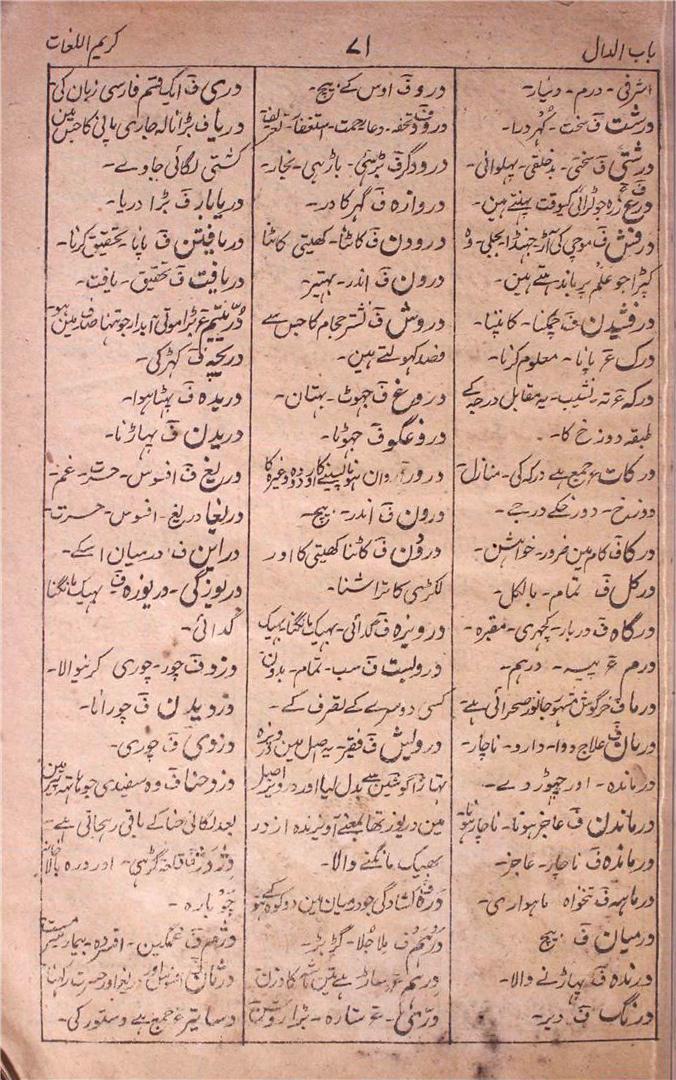 باب الدال
۷۱
کریم اللغات
اشرفی - درم - دینار -
درشت ف سخت - کُهردرا -
درشتی ف سختی - بدخلقی -
درع ع زره جو لڑائی کیوقت پہنتے ہین -
درفش ف موچی کی آر - جہنڈا - بجلی - وہ
کپڑا جو علم پر باندہتے ہین -
درفشیدن ف چمکنا - کانپنا -
درک ع پانا - معلوم کرنا -
درکہ ع تہ - نشیب - یہ مقابل درجہ کے
طبقہ دوزخ کا -
درکات ع جمع ہے درکہ کی - منازل
دوزخ - دوزخکے درجے -
درکار ف کام مین ضرور - خواہش -
درکل ف تمام - بالکل -
درگاہ ف دربار - کچہری - مقبرہ -
درم ع پیسہ - درہم -
درما ف خرگوش مشہور جانور صحرائی ہے -
درمان ف علاج - دوا - دارو - ناچار -
درماندہ - اور چہوڑ دے -
درماندن ف عاجز ہونا - ناچار ہونا
درماندہ ف ناچار - عاجز -
درماہہ ف تنخواہ ماہواری -
درمیان ف بیچ
درندہ ف پہاڑنے والا -
درنگ ف دیر -
درو ف اوس کے بیچ -
درود ف وتحفہ - دعا - رحمت - استغفار - تعریف
درودگر ف بڑہئی - باڑہی - نجار -
دروازہ ف گہر کا در -
درودن ف کاٹنا - کھیتی کاٹنا
درون ف اندر - بہتیر -
دروش ف نشتر حجام کا جس سے
فصد کہولتے ہین -
دروغ ف جہوٹ - بہتان -
دروغگو ف جہوٹا -
درون ف اندر - بیچ -
درون ف کاٹنا کھیتی کا اور
لکڑی کا تراشنا -
درویزہ ف گدائی - بہیک مانگنا - بہیک
دروبست ف سب - تمام - بدون
کسی دوسرے کے تصرف کے -
درویش ف فقیر - یہ اصل مین درویزہ
تہا زا کو شین سے بدل لیا اور درویز اصل
مین دریوز تھا بمعنے آویزندہ از در
بھیک مانگنے والا -
درہ ف کشادگی جو درمیان مین دو کوہ کے ہو
درہم ف ملا جلا - گڑبڑ -
درہم ع
درّی ع ستارہ - بڑا روشن
دری ف ایک قسم فارسی زبان کی
دریا ف بڑا نالہ جاری پانی کا جس مین
کشتی لگائی جاوے -
دریابار ف بڑا دریا -
دریافتن ف پانا - تحقیق کرنا -
دریافت ف تحقیق - یافت -
درّ یتیم ع بڑا موتی آبدار جو تنہا صدف مین ہو -
دریچہ ف کھڑکی -
دریدہ ف پہٹا ہوا -
دریدن ف پہاڑنا -
دریغ ف افسوس - حسرت - غم -
دریغا دریغ - افسوس - حسرت -
دراین ف درمیان اسکے -
دریوزگی - دریوزہ ف بہیک مانگنا
گدائی -
دزد ف چور - چوری کرنیوالا -
دزدیدن ف چورانا -
دزدی ف چوری -
دزدحنا ف وہ سفیدی جو ہاتہہ پیر مین
بعد لگانی حنا کے باقی رہجاتی ہے -
دز دژ ف قلعہ - گڑہی - اور درہ
چوبارہ -
دژم ف غمگین - افسردہ - بیمار - مست
دساتیر ع جمع ہے دستور کی -